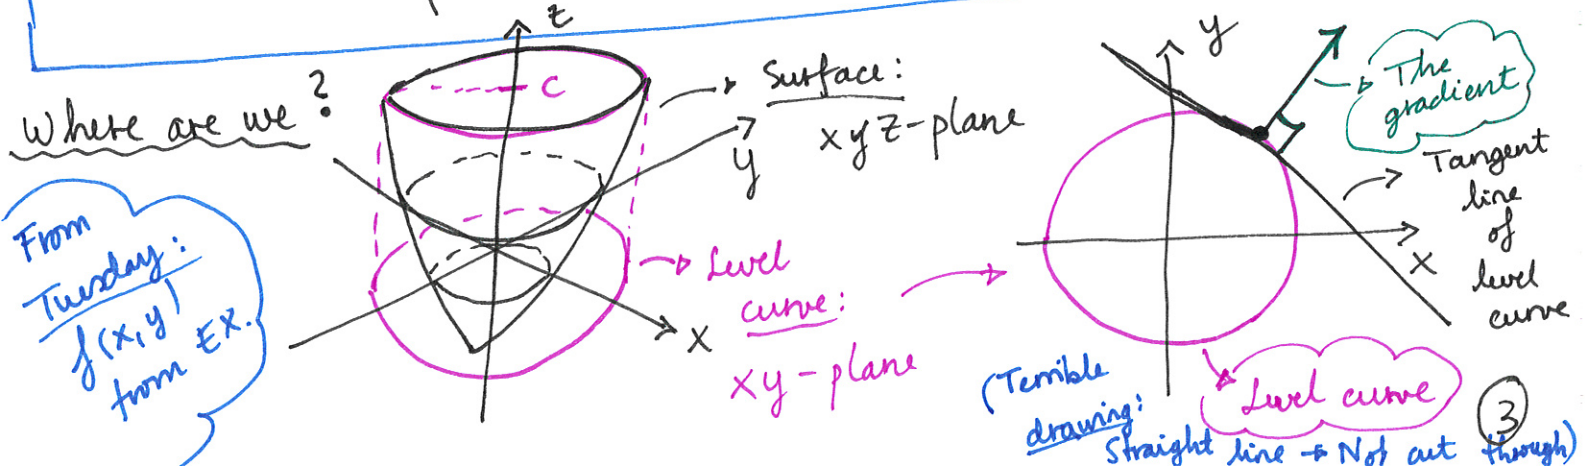 Where are we?
From
Tuesday:
f(x,y)
from EX.
z
C
y
x
Surface:
xyz-plane
Level
curve:
xy-plane
y
x
The
gradient
Tangent
line
of
level
curve
Level curve
(Terrible
drawing:
Straight line → Not cut through)
3